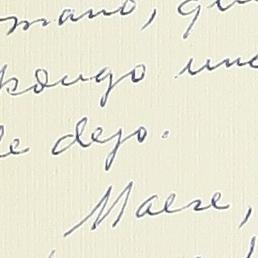 mano, qu
pongo una
le dejo.
Maese,